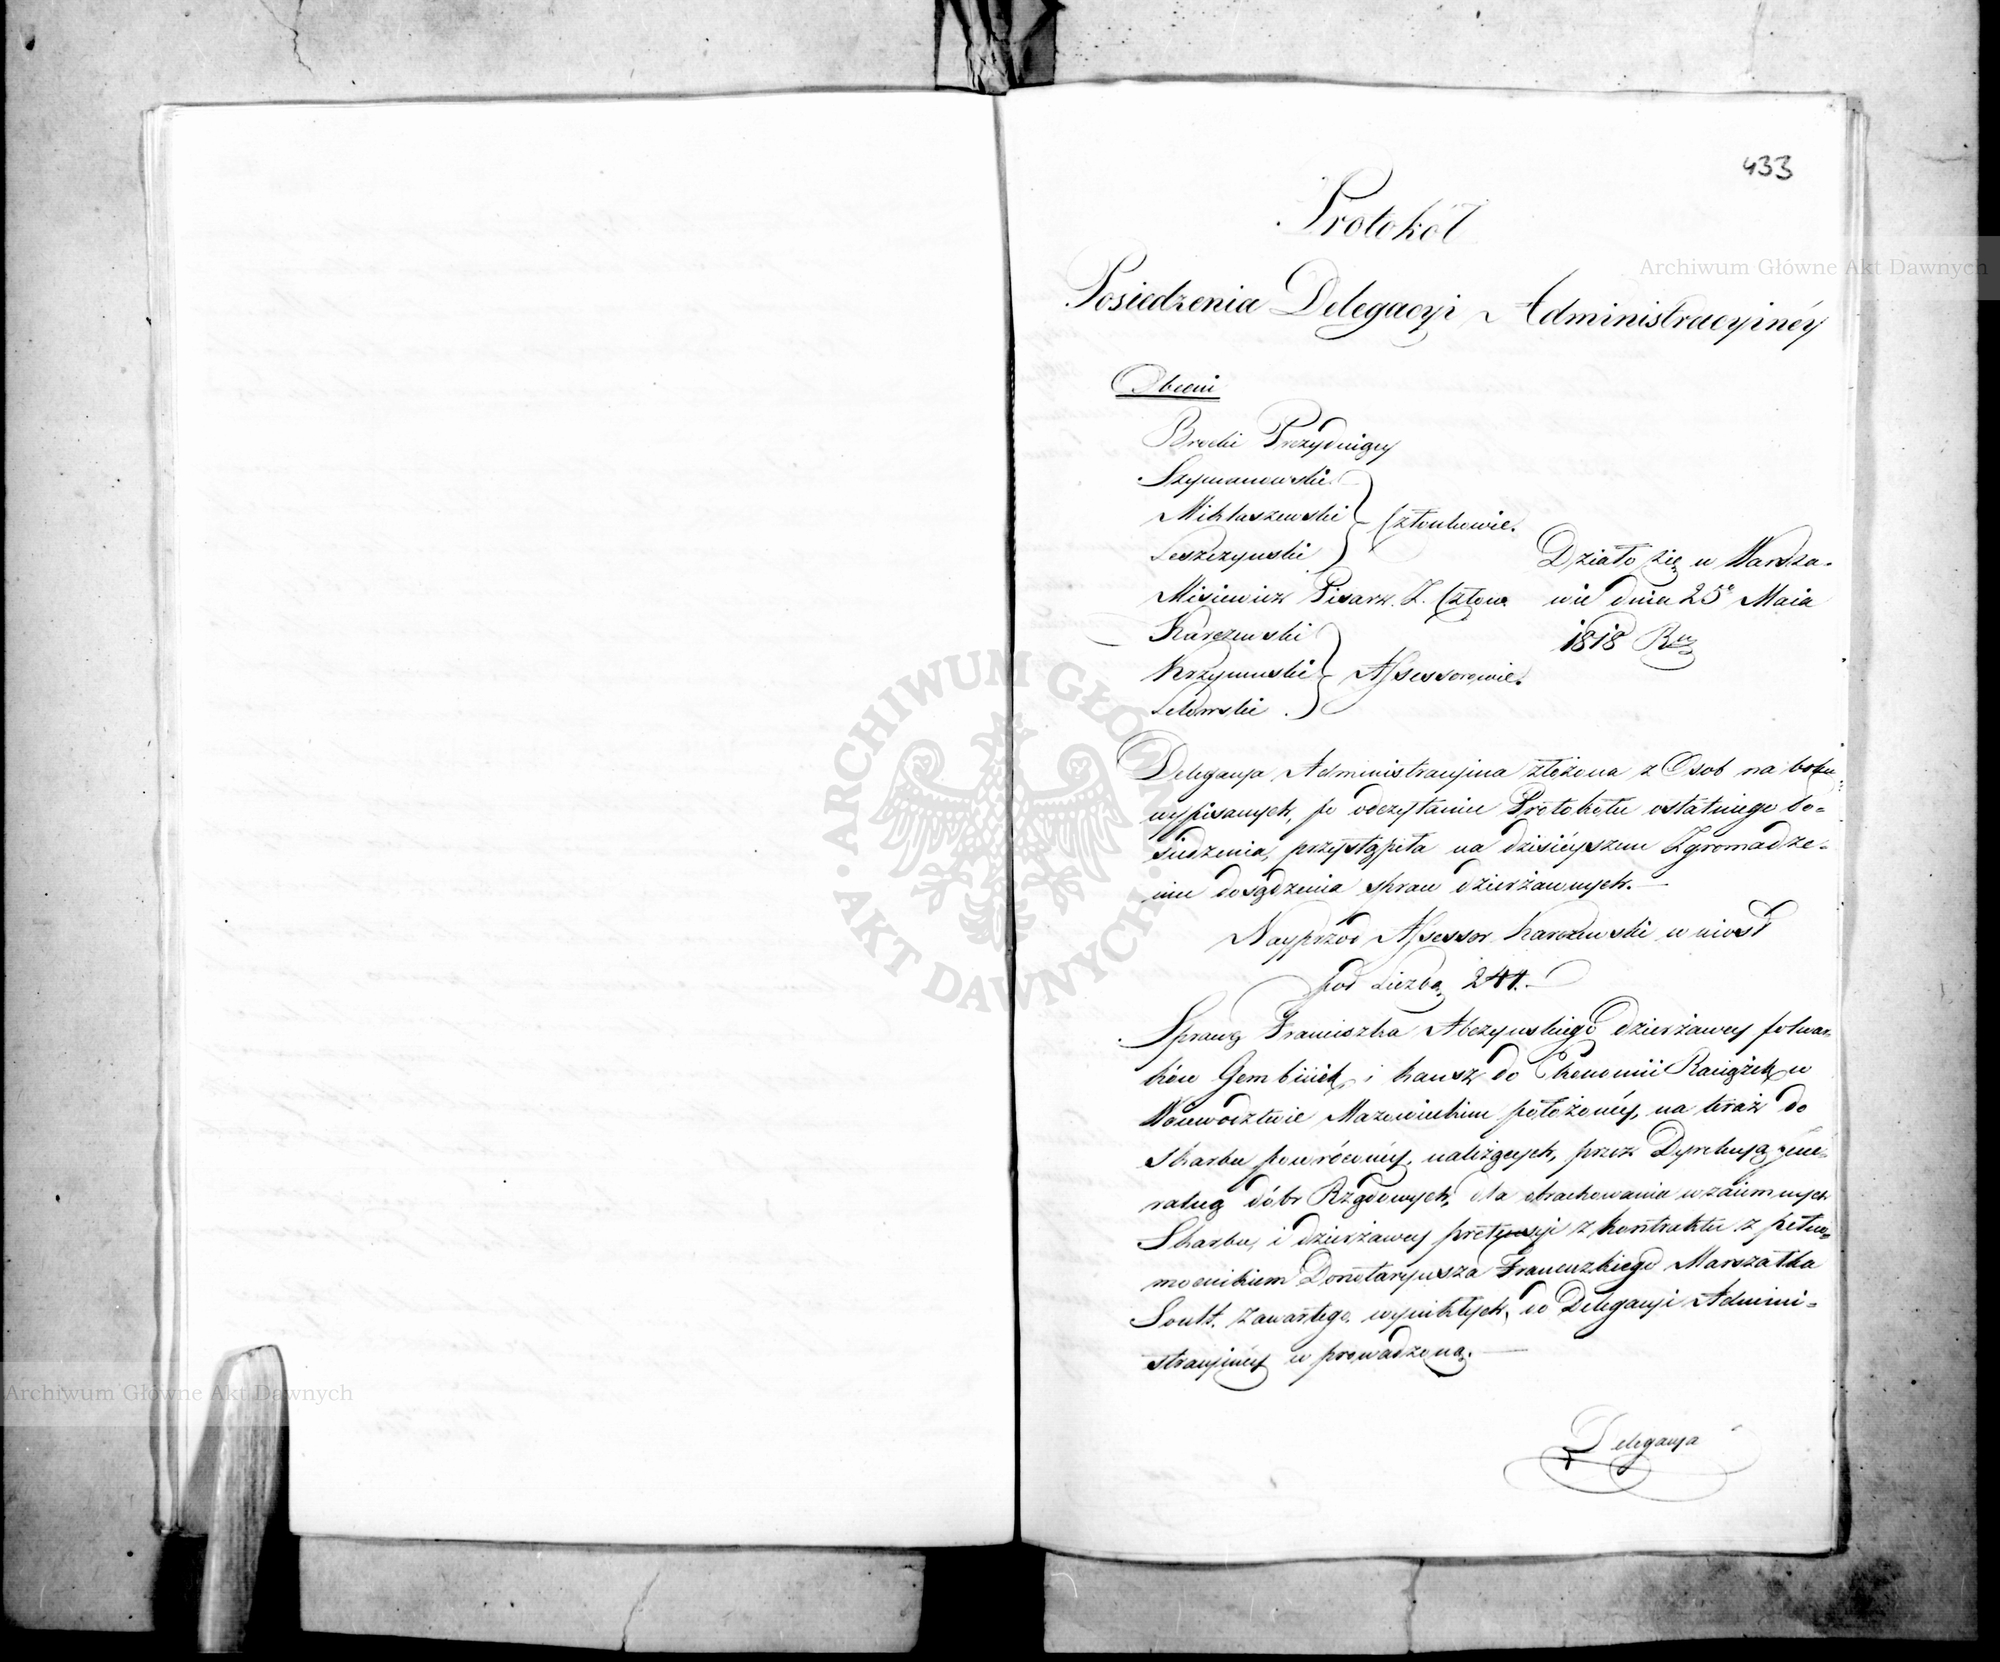 433
Protokół
Posiedzenia Delegacyi Administracyinéy
Obecni
Brocki Prezyduiący
Szymanowski
Mikłaszewski
Członkowie.
Leszczynski
Misiewicz Pisarz. Z. Człon.
Karczewski
Krzymuski
Assessorowie.
Letowski
Działo się w Warsza-
wie dnia 25º Maia
1818 Ru
Delegacya Administracyina złożona z Osob na boku
wypisanych, po odczytaniu Protokołu ostatniego Po-
siedzenia, przystąpiła na dzisieyszem Zgromadze-
niu do sądzenia spraw dzierżawnych.
Nayprzód Assessor Karczewski wniosł
pod Liczbą 244.
Sprawę Franciszka dzierżawcy folwar-
ków Gembiiek, i Kausz do Ekonomii Raciążek w
Woiewodztwie Mazowieckim położonéy, na teraz do
Skarbu powróconéy, należących, przez Dyrekcyą Jene-
ralną dóbr Rządowych, dla obrachowania wzaiemnych
Skarbu, i dzierżawcy pretensyi z kontraktu z pełno-
mocnikiem Donotaryusza Francuzkiego Marszałka
Soult. zawartego wynikłych, do Delegacyi Admini-
stracyinéy wprowadzoną.
Delegacya
Archiwum Główne Akt Dawnych
Archiwum Główne Akt Dawnych
ARCHIWUM GŁÓWNE AKT DAWNYCH